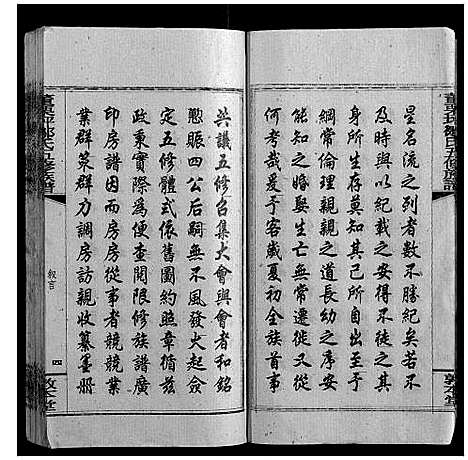 星名流之列者數不勝紀矣若不
及時與以紀載之安得不徒之其
身所生存莫知其己所自出至于
綱常倫理親親之道長幼之序安
能知之婚娶生亡無常遷從又從
何考哉爰于客歲夏初全族首事
共議五修召集大會與會者和銘
懃賑四公后嗣無不風發火起僉
定五修體式依舊圖約照章循茲
政秉實際為便查閱限修族譜廣
印房譜因而房房從事者競競業
業群策群力調房訪親收纂墨册
氏五修族譜
敘言
四
敦本堂